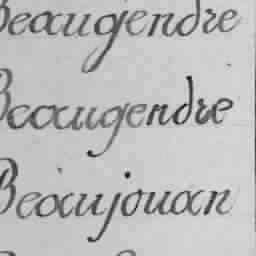 Beaugendre
Beaugendre
Beaujouan